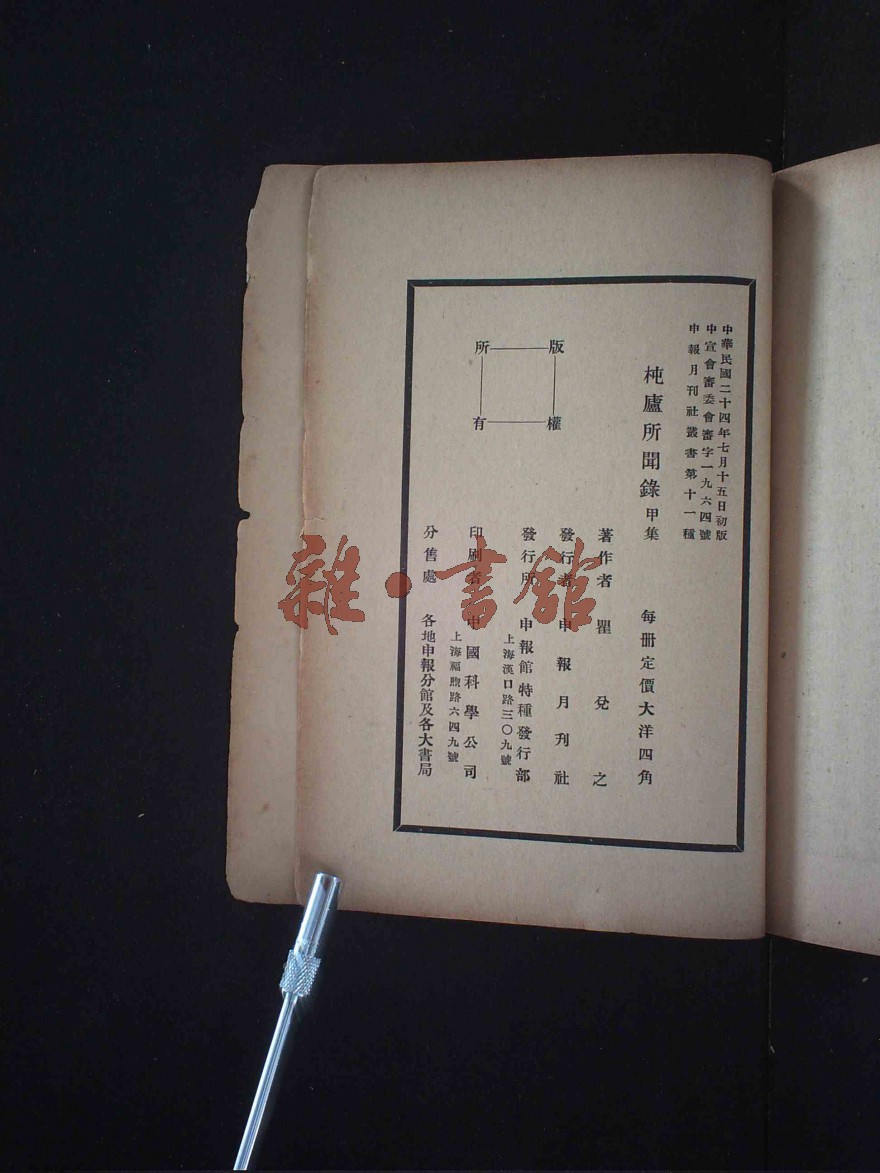 中華民國二十四年七月十五日初版
中宣會審委會審字一九六四號
申報月刊社叢書第十一種
杶廬所聞錄 甲集
每冊定價大洋四角
著作者 瞿兌之
發行者 申報月刊社
發行所 申報館特種發行部
上海漢口路三〇九號
印刷者 中國科學公司
上海福煦路六四九號
分售處 各地申報分館及各大書局
版權所有
雜·書館